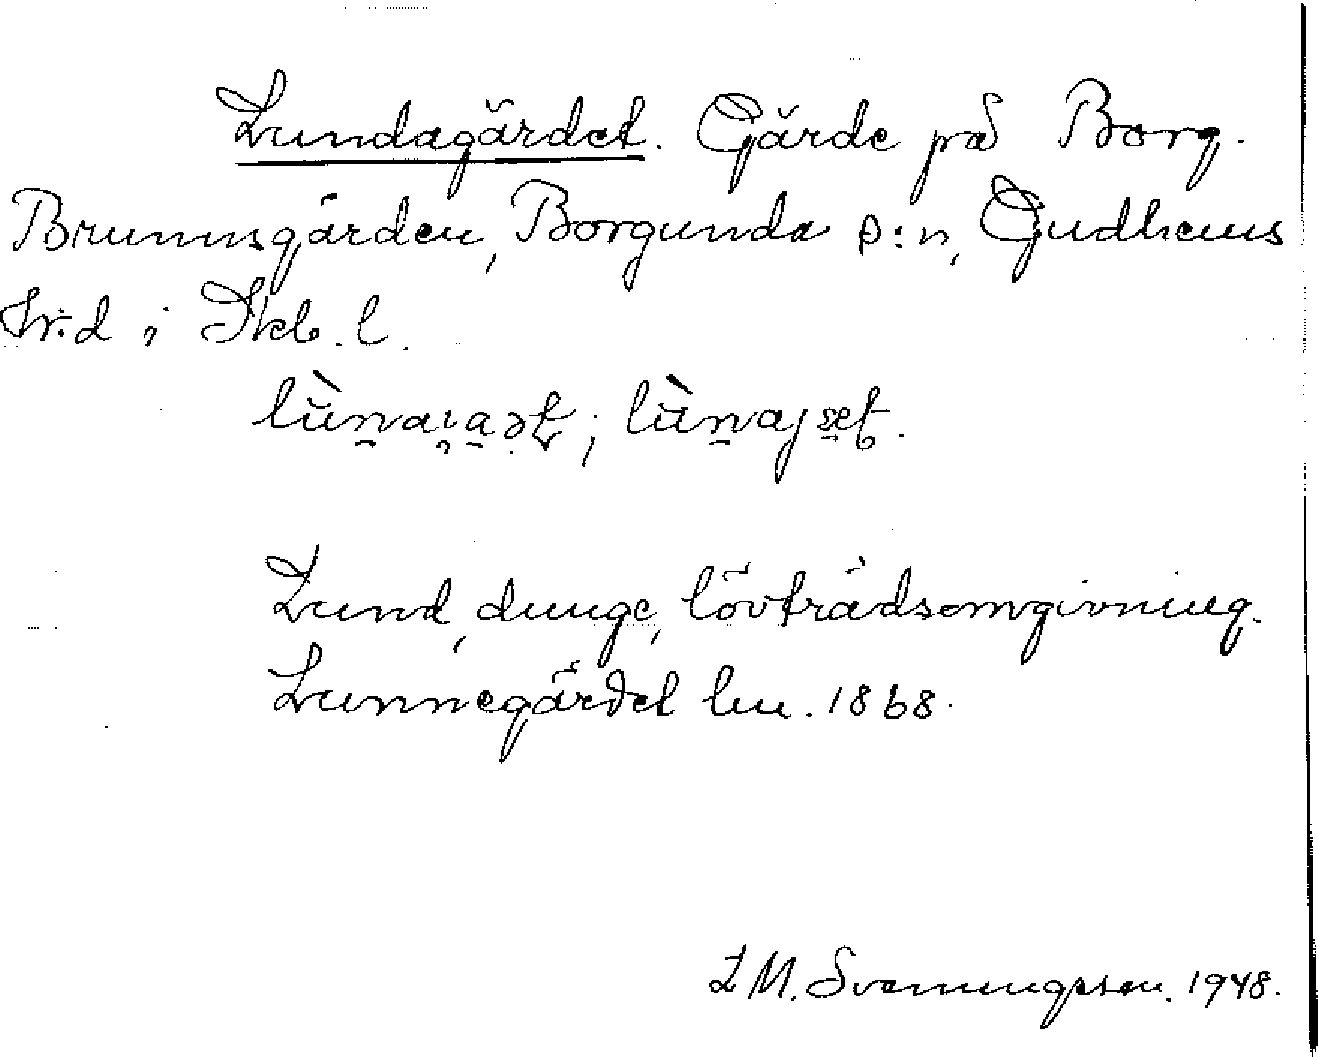 Lundagärdet. Gärde på Borg.
Brunnsgården, Borgunda s:n, Gudhems
hr:d i Skb. l.
Lund, dunge, lövträdsomgivning.
Lunnegärdet hu. 1868.
L M. Svenungsson. 1948.